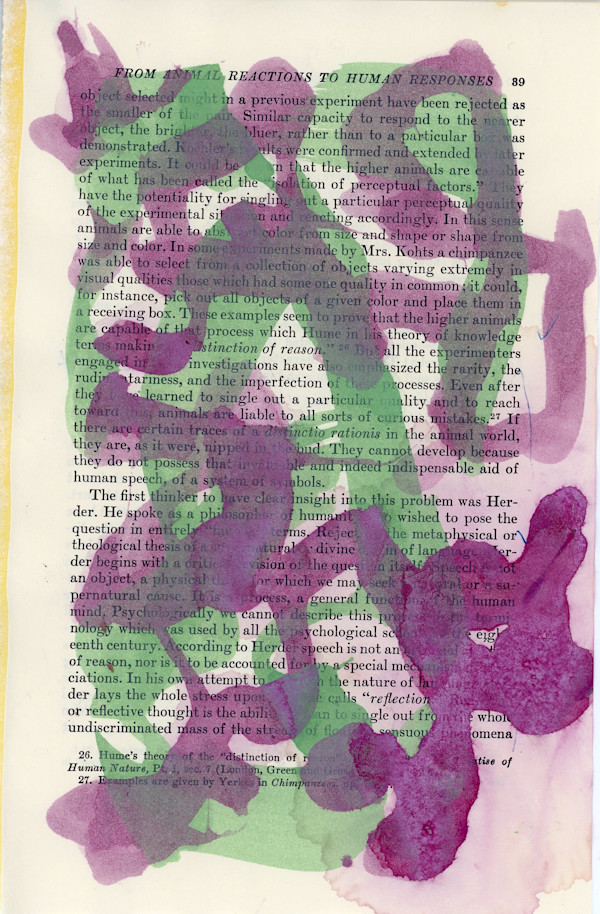 FROM ANIMAL REACTIONS TO HUMAN RESPONSES 39
object selected might in a previous experiment have been rejected as
the smaller of the pair. Similar capacity to respond to the nearer
object, the brighter, the bluer, rather than to a particular box was
demonstrated. Koehler's results were confirmed and extended by later
experiments. It could be shown that the higher animals are capable
of what has been called the "isolation of perceptual factors." They
have the potentiality for singling out a particular perceptual quality
of the experimental situation and reacting accordingly. In this sense
animals are able to abstract color from size and shape or shape from
size and color. In some experiments made by Mrs. Kohts a chimpanzee
was able to select from a collection of objects varying extremely in
visual qualities those which had some one quality in common; it could,
for instance, pick out all objects of a given color and place them in
a receiving box. These examples seem to prove that the higher animals
are capable of that process which Hume in his theory of knowledge
terms making distinction of reason." 26 But all the experimenters
engaged in investigations have also emphasized the rarity, the
rudimentariness, and the imperfection of processes. Even after
they have learned to single out a particular quality and to reach
toward this, animals are liable to all sorts of curious mistakes.27 If
there are certain traces of a distinctio rationis in the animal world,
they are, as it were, nipped in the bud. They cannot develop because
they do not possess that invaluable and indeed indispensable aid of
human speech, of a system of symbols.
The first thinker to have clear insight into this problem was Her-
der. He spoke as a philosopher of humanity who wished to pose the
question in entirely terms. Rejecting the metaphysical or
theological thesis of a supernatural or divine origin of language Her-
der begins with a critical revision of the question itself. Speech is not
an object, a physical thing for which we may seek a natural or a su-
pernatural cause. It is a process, a general function of the human
mind. Psychologically we cannot describe this process in the termi-
nology which was used by all the psychological schools of the eight-
eenth century. According to Herder speech is not an
of reason, nor is it to be accounted for by a special mechanism
ciations. In his own attempt to the nature of language
der lays the whole stress upon he calls "reflection."
or reflective thought is the ability of man to single out from the whole
undiscriminated mass of the stream of floating sensuous phenomena
26. Hume's theory of the "distinction of Treatise of
Human Nature, Pt. I, sec. 7 (London, Green and
27. Examples are given by Yerkes in Chimpanzees,